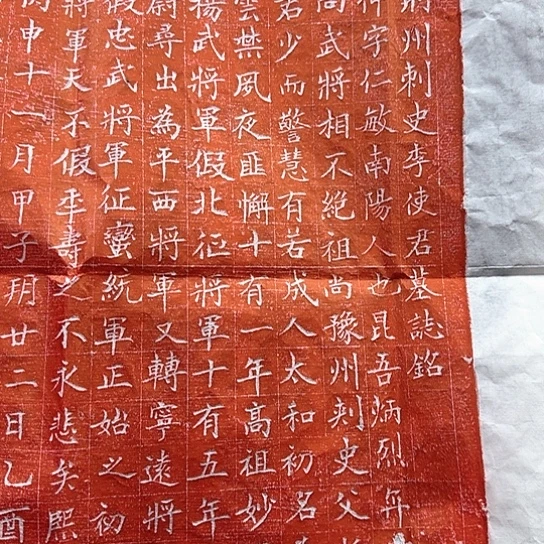 州刺史李使君墓誌銘
字仁敏南陽人也昆吾炳烈弈
尚武將相不絕祖尚豫州刺史父
若少而警慧有若成人太和初名
雲禁夙夜匪懈十有一年高祖妙
揚武將軍假北征將軍十有五年
尉尋出為平西將軍又轉寧遠將
假忠武將軍征蠻統軍正始之初
將軍天不假年壽之不永悲矣熙
申十一月甲子朔廿二日乙酉